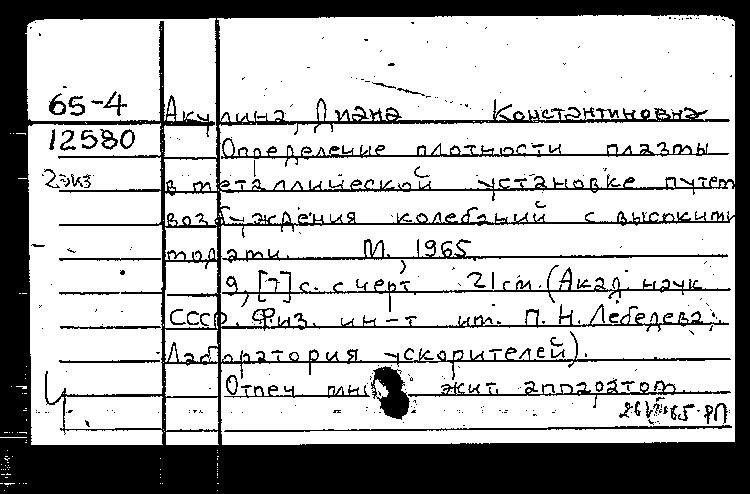 65-4 Акулина, Диана Константиновна
12580 Определение плотности плазмы
2экз в металлической установке путем
возбуждения колебаний с высокими
модами. М., 1965.
9, [7] с. с черт. 21 см. (Акад. наук
СССР. Физ. ин-т им. П. Н. Лебедева.
Лаборатория ускорителей).
Отпеч. множит. аппаратом.